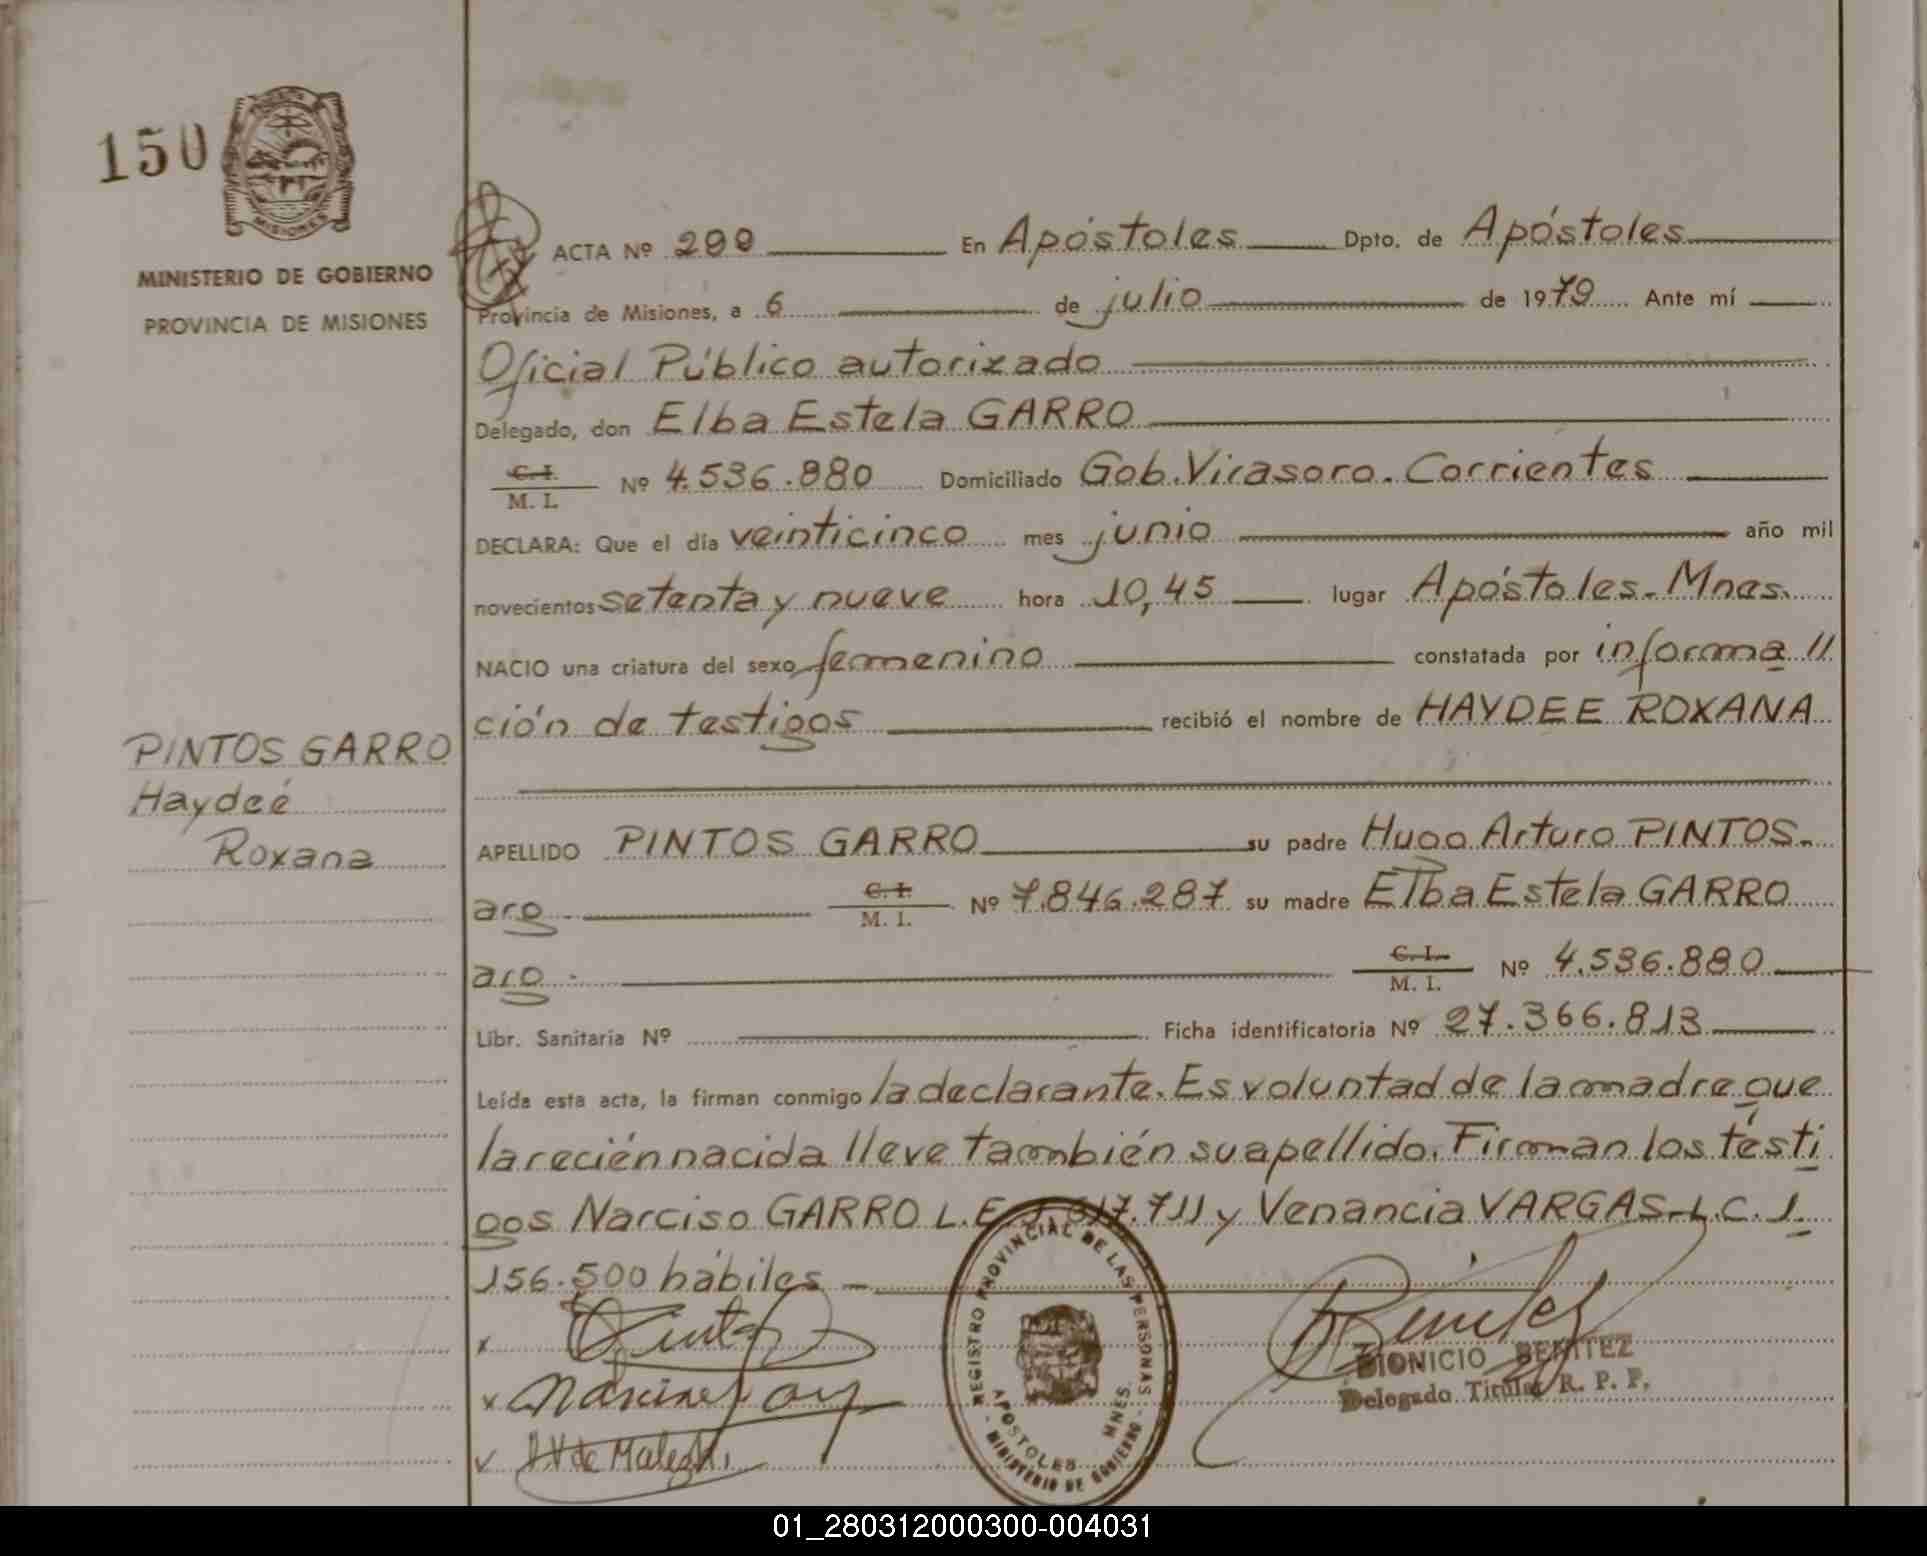 150
MISIONES
MINISTERIO DE GOBIERNO
PROVINCIA DE MISIONES
ACTA Nº 299 En Apóstoles Dpto. de Apóstoles
Provincia de Misiones, a 6 de julio de 1979 Ante mí
Oficial Público autorizado
Delegado, don Elba Estela GARRO
C. I.
M. I. Nº 4.536.880 Domiciliado Gob. Virasoro. Corrientes
DECLARA: Que el día veinticinco mes junio año mil
novecientos setenta y nueve hora 10,45 lugar Apóstoles. Mnes.
NACIO una criatura del sexo femenino constatada por informa //
ción de testigos recibió el nombre de HAYDEE ROXANA
PINTOS GARRO
Haydeé
Roxana
APELLIDO PINTOS GARRO su padre Hugo Arturo PINTOS.
arg. C. I.
M. I. Nº 7.846.287 su madre Elba Estela GARRO
arg. C. I.
M. I. Nº 4.536.880
Libr. Sanitaria Nº Ficha identificatoria Nº 27.366.813
Leída esta acta, la firman conmigo la declarante. Es voluntad de la madre que
la recién nacida lleve también su apellido. Firman los testi
gos Narciso GARRO L.E. 617.711 y Venancia VARGAS L.C. 1.
156.500 hábiles
REGISTRO PROVINCIAL DE LAS PERSONAS
APOSTOLES MNES.
MINISTERIO DE GOBIERNO
DIONICIO BENITEZ
Delegado Titular R. P. P.
01_280312000300-004031